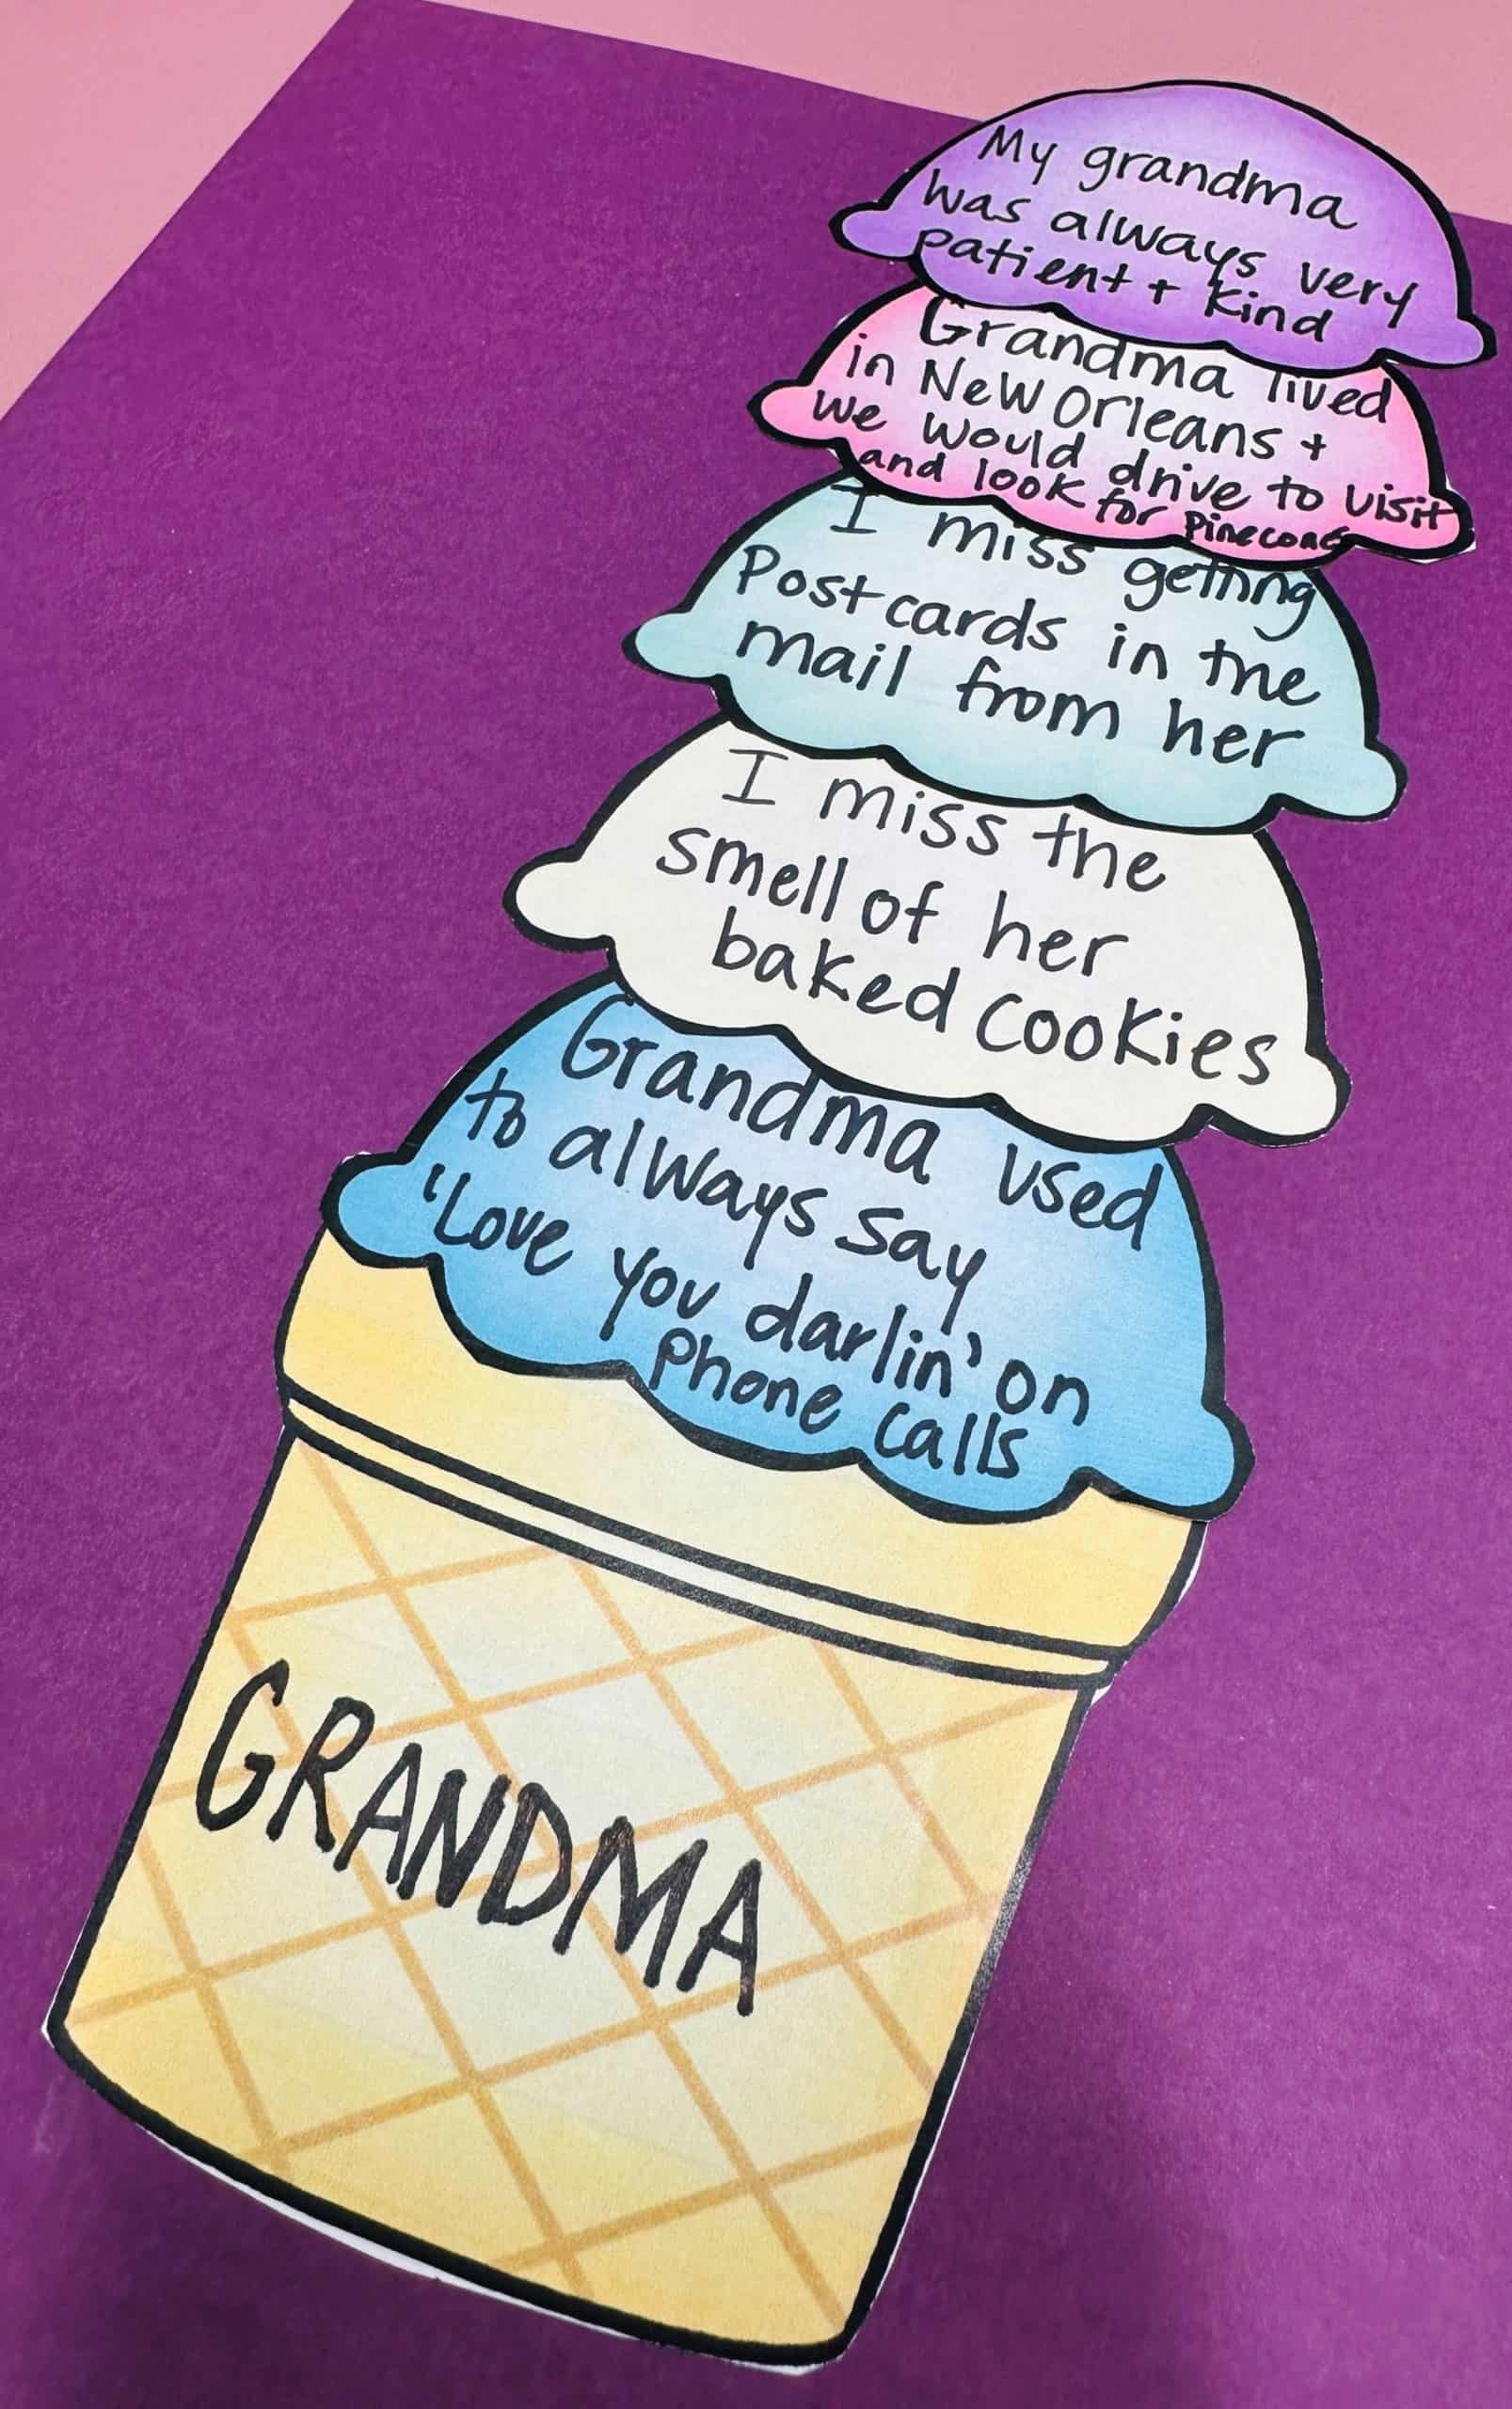 My grandma
was always very
patient + kind
Grandma lived
in New Orleans +
we would drive to visit
and look for pinecones
I miss getting
Postcards in the
mail from her
I miss the
smell of her
baked cookies
Grandma used
to always say
'Love you darlin' on
Phone calls
GRANDMA